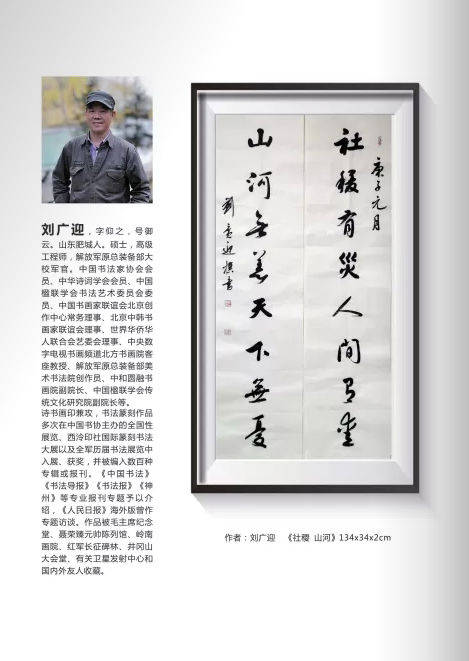 刘广迎，字仰之，号御
云。山东肥城人。硕士，高级
工程师，解放军原总装备部大
校军官。中国书法家协会会
员、中华诗词学会会员、中国
楹联学会书法艺术委员会委
员、中国书画家联谊会北京创
作中心常务理事、北京中韩书
画家联谊会理事、世界华侨华
人联合会艺委会理事、中央数
字电视书画频道北方书画院客
座教授、解放军原总装备部美
术书法院创作员、中和圆融书
画院副院长、中国楹联学会传
统文化研究院副院长等。
诗书画印兼攻，书法篆刻作品
多次在中国书协主办的全国性
展览、西泠印社国际篆刻书法
大展以及全军历届书法展览中
入展、获奖，并被编入数百种
专辑或报刊。《中国书法》
《书法导报》《书法报》《神
州》等专业报刊专题予以介
绍，《人民日报》海外版曾作
专题访谈。作品被毛主席纪念
堂、聂荣臻元帅陈列馆、岭南
画院、红军长征碑林、井冈山
大会堂、有关卫星发射中心和
国内外友人收藏。
庚子元月
社稷有災人間有愛
山河無恙天下無憂
劉廣迎撰書
作者：刘广迎 《社稷 山河》134x34x2cm